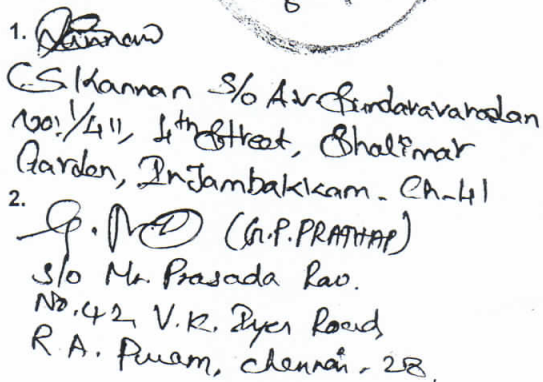 6
1. Kannan
CS. Kannan S/o A.V. Sundaravaradan
No: 1/411, 4th Street, Shalimar
Garden, Injambakkam - Ch-41
2.
(G.P. PRATHAP)
S/o Mr. Prasada Rao.
No. 42, V.K. Iyer Road,
R.A. Puram, Chennai - 28.